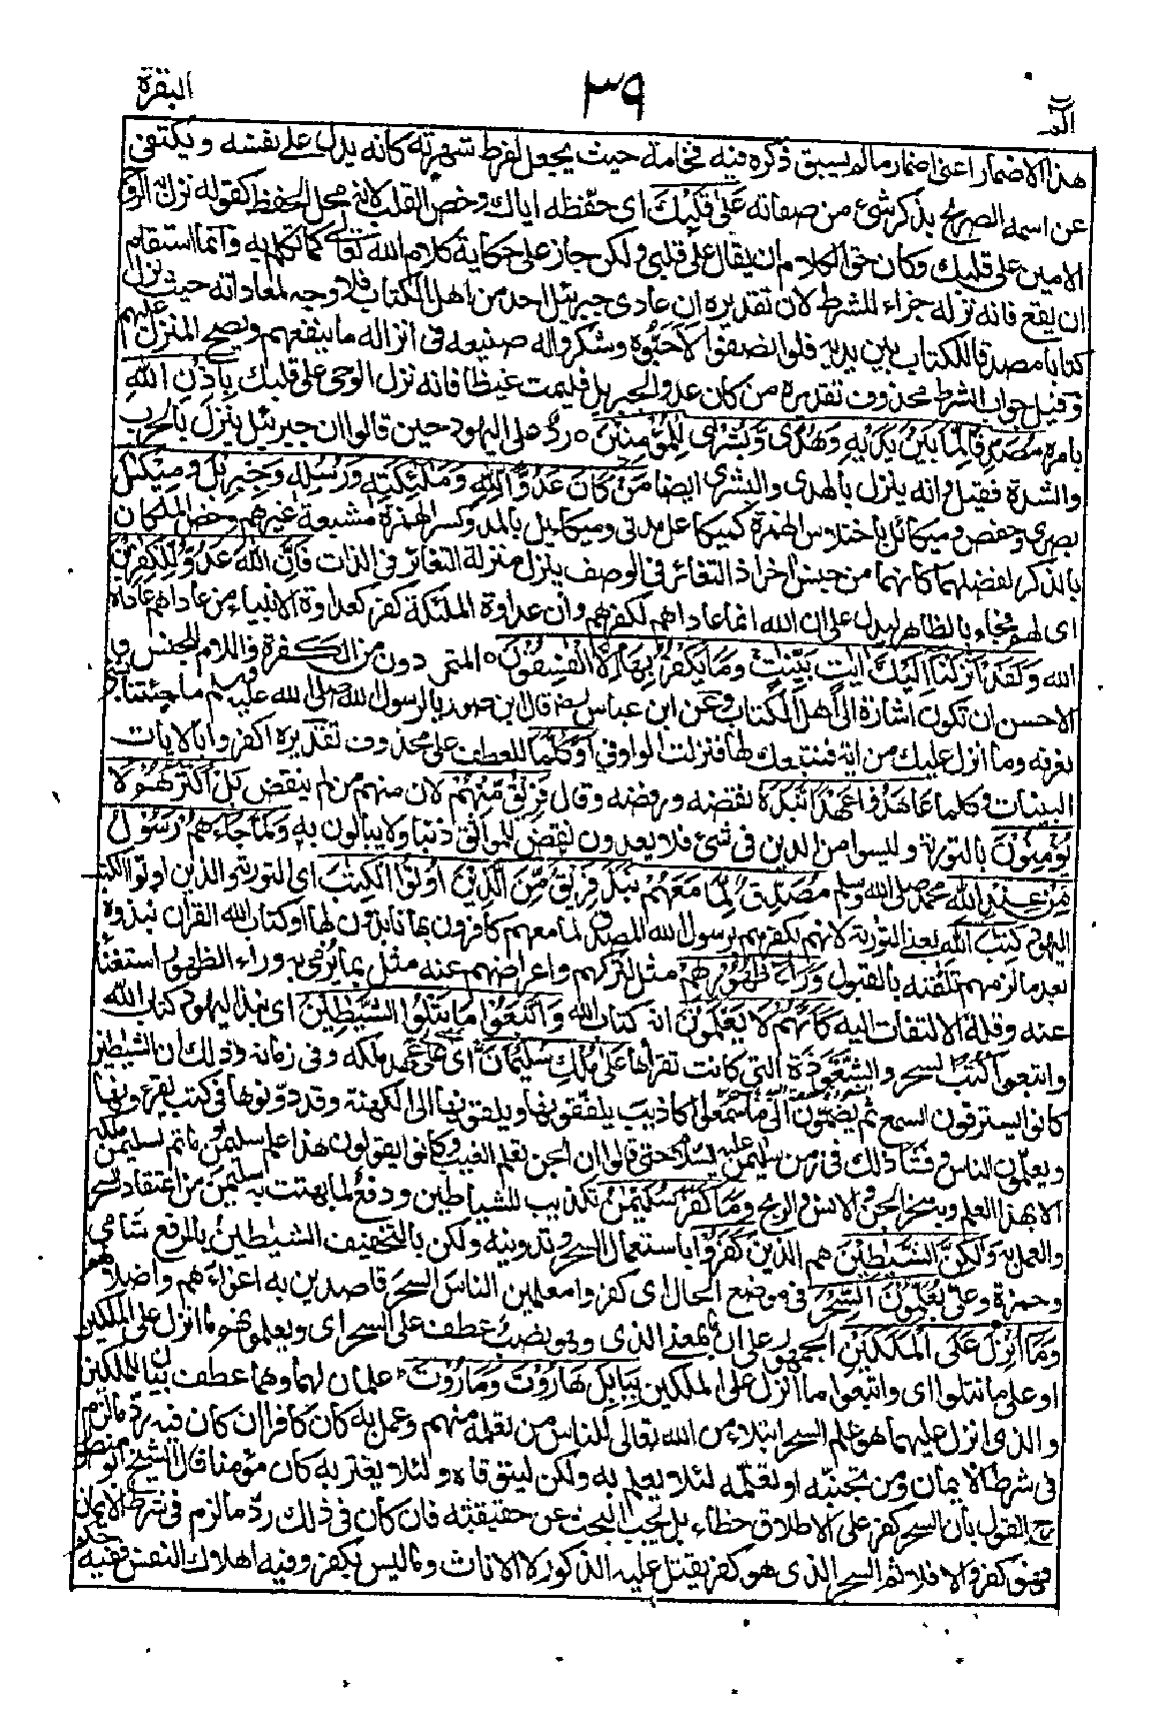 البقرة
٣٩
الۤمۤ
هذا الاضمار اعنى اضمار مالم يسبق ذكره فيه فخامة حيث يجعل لفرط شهرته كانه يدل على نفسه ويكتفى
عن اسمه الصريح بذكر شئ من صفاته عَلٰى قَلْبِكَ اى حفظه اياك وخص القلب لانه محل الحفظ كقوله نزل به الروح
الامين على قلبك وكان حق الكلام ان يقال على قلبى ولكن جاز على حكاية كلام الله تعالى كما تكلم به وانما استقام
ان يقع فانه نزله جزاء للشرط لان تقديره ان عادى جبريل احد من اهل الكتاب فلا وجه لمعاداته حيث نزل
كتابا مصدقا للكتاب بين يديه فلو انصفوا لاَحَبُّوه وشكروا له صنيعه فى انزاله ما ينفعهم ويصحح المنزل عليهم
وقيل جواب الشرط محذوف تقديره من كان عدوا لجبريل فليمت غيظا فانه نزل الوحى على قلبك بِاِذْنِ اللّٰهِ
بامره مُصَدِّقًا لِّمَا بَيْنَ يَدَيْهِ وَهُدًى وَّبُشْرٰى لِلْمُؤْمِنِيْنَ ۝ ردٌّ على اليهود حين قالوا ان جبريل ينزل بالحرب
والشدة فقيل فانه ينزل بالهدى والبشرى ايضا مَنْ كَانَ عَدُوًّا لِّلّٰهِ وَمَلٰٓئِكَتِهٖ وَرُسُلِهٖ وَجِبْرِيْلَ وَمِيْكٰىلَ
بصرى وحفص وميكائل باختلاس الهمزة كميكاعل مدنى وميكائيل بالمد وكسر الهمزة مشبعة غيرهم وخص الملكان
بالذكر لفضلهما كانهما من جنس اخر اذ التغائر فى الوصف ينزل منزلة التغائر فى الذات فَاِنَّ اللّٰهَ عَدُوٌّ لِّلْكٰفِرِيْنَ
اى لهم فجاء بالظاهر ليدل على ان الله انما عاداهم لكفرهم وان عداوة الملٰئكة كفر كعداوة الانبياء من عاداهم عاداه
الله وَلَقَدْ اَنْزَلْنَآ اِلَيْكَ اٰيٰتٍۢ بَيِّنٰتٍ وَمَا يَكْفُرُ بِهَآ اِلَّا الْفٰسِقُوْنَ ۝ المتمردون من الكفرة واللام للجنس و
الاحسن ان تكون اشارة الى اهل الكتاب وعن ابن عباس رض قال ابن صوريا لرسول الله صلى الله عليه وسلم ما جئتنا بشئ
نعرفه وما انزل عليك من اية فنتبعك لها فنزلت الواو فى اَوَكُلَّمَا للعطف على محذوف تقديره اكفروا بالايات
البينات وكلما عَاهَدُوْا عَهْدًا نَّبَذَهٗ نقضه ورفضه وقال فَرِيْقٌ مِّنْهُمْ لان منهم من لم ينقض بَلْ اَكْثَرُهُمْ لَا
يُؤْمِنُوْنَ بالتورٰىة وليسوا من الدين فى شئ فلا يعدون نقض المواثق ذنبا ولا يبالون به وَلَمَّا جَآءَهُمْ رَسُوْلٌ
مِّنْ عِنْدِ اللّٰهِ محمد صلى الله وسلم مُصَدِّقٌ لِّمَا مَعَهُمْ نَبَذَ فَرِيْقٌ مِّنَ الَّذِيْنَ اُوْتُوا الْكِتٰبَ اى التورٰىة والذين اوتوا الكتب
اليهود كِتٰبَ اللّٰهِ يعنى التورٰىة لانهم بكفرهم برسول الله المصدق لما معهم كافرون بها نابذون لها او كتاب الله القران نبذوه
بعد ما لزمهم تلقيه بالقبول وَرَآءَ ظُهُوْرِهِمْ مثل لتركهم واعراضهم عنه مثل بما يُرمى به وراء الظهور استغناءً
عنه وقلة الالتفات اليه كَاَنَّهُمْ لَا يَعْلَمُوْنَ انه كتاب الله وَاتَّبَعُوْا مَا تَتْلُوا الشَّيٰطِيْنُ اى نبذ اليهود كتاب الله
واتبعوا كتب السحر والشعوذة التى كانت تقرأها عَلٰى مُلْكِ سُلَيْمٰنَ اى على عهد ملكه وفى زمانه وذلك ان الشيٰطين
كانوا يسترقون السمع ثم يضمون الى ما سمعوا اكاذيب يلفقونها ويلقونها الى الكهنة وقد دونوها فى كتب يقرءونها
ويعلمون الناس وفشا ذلك فى زمن سليمن عليه السلام حتى قالوا ان الجن تعلم الغيب وكانوا يقولون هذا علم سليمن وما تم لسليمن ملكه
الا بهذا العلم وبه سخر الجن والانس والريح وَمَا كَفَرَ سُلَيْمٰنُ تكذيب للشياطين ودفع لما بهتت به سليمن من اعتقاد السحر
والعمل به وَلٰكِنَّ الشَّيٰطِيْنَ هم الذين كَفَرُوْا باستعمال السحر وتدوينه ولكن بالتخفيف الشيٰطين بالرفع شامى
وحمزة وعلى يُعَلِّمُوْنَ النَّاسَ السِّحْرَ فى موضع الحال اى كفروا معلمين الناس السحر قاصدين به اغواءهم واضلالهم
وَمَآ اُنْزِلَ عَلَى الْمَلَكَيْنِ الجمهور على ان ما بمعنى الذى وهو نصب عطف على السحر اى ويعلمونهم ما انزل على الملكين
او على ما تتلوا اى واتبعوا ما انزل على الملكين بِبَابِلَ هَارُوْتَ وَمَارُوْتَ علمان لهما وهما عطف بيان للملكين
والذى انزل عليهما هو علم السحر ابتلاء من الله تعالى للناس من تعلمه منهم وعمل به كان كافرا ان كان فيه رد ما لزم
فى شرط الايمان ومن تجنبه او تعلمه لئلا يعمل به ولكن ليتوقاه ولئلا يغتر به كان مؤمنا قال الشيخ ابو منصور
رح القول بان السحر كفر على الاطلاق خطاء بل يجب البحث عن حقيقته فان كان فى ذلك رد ما لزم فى شرط الايمان
فهو كفر والا فلا ثم السحر الذى هو كفر يقتل عليه الذكور لا الاناث وما ليس بكفر وفيه اهلاك النفس ففيه حكم